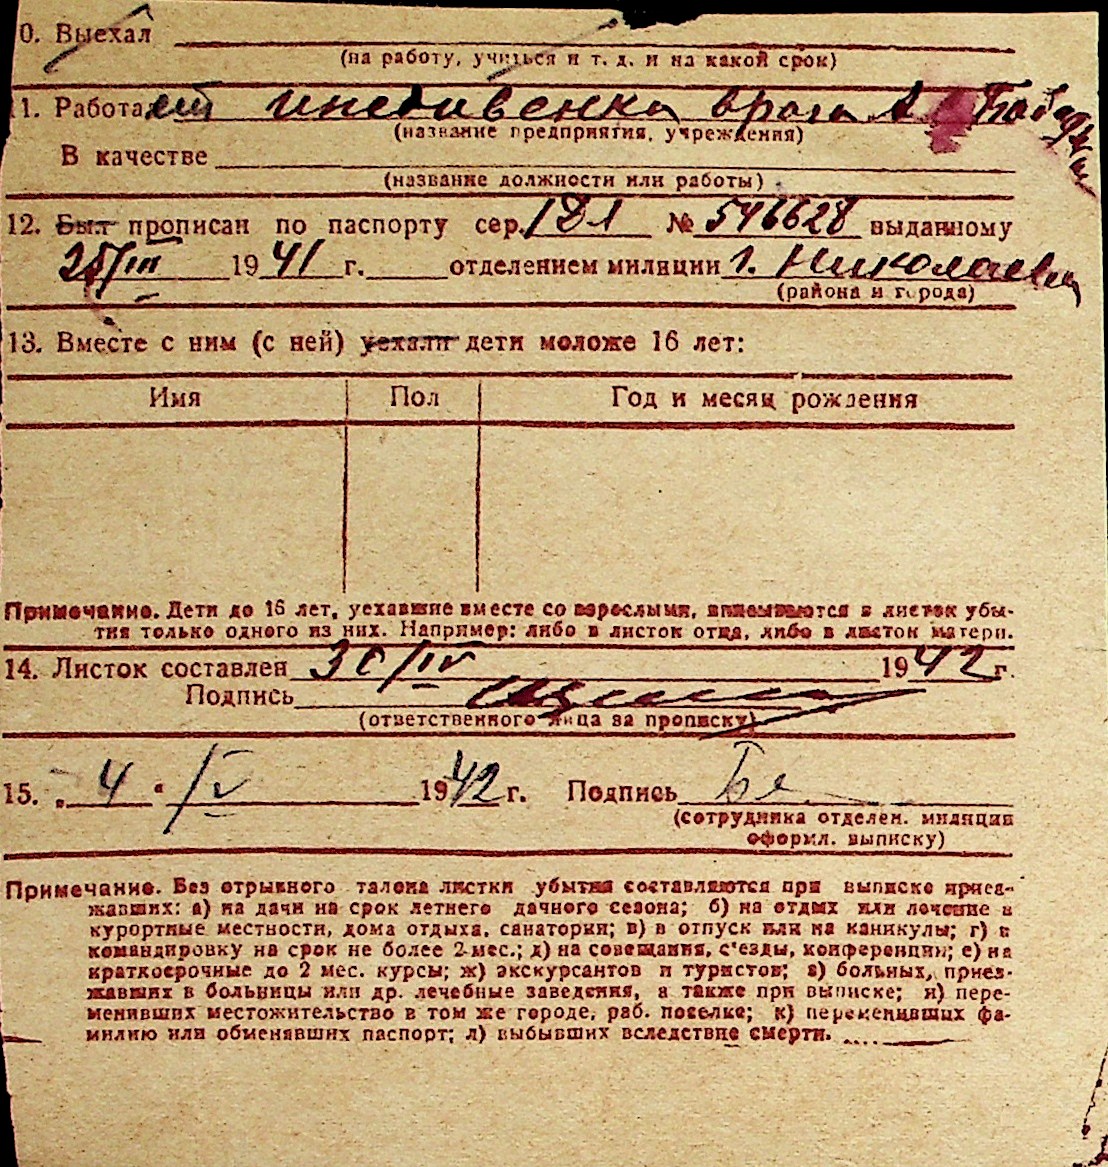 0. Выехал
(на работу, учиться и т. д. и на какой срок)
1. Работает иждивенка врага
(название предприятия, учреждения)
В качестве
(название должности или работы)
12. Был прописан по паспорту сер. № 546628 выданному
25/III 1941 г. отделением милиции г. Николаева
(района и города)
13. Вместе с ним (с ней) уехали дети моложе 16 лет:
Имя Пол Год и месяц рождения
Примечание. Дети до 16 лет, уехавшие вместе со взрослыми, вписываются в листок убы-
тия только одного из них. Например: либо в листок отца, либо в листок матери.
14. Листок составлен 30/IV 1942 г.
Подпись
(ответственного лица за прописку)
15. „4“ /V 1942 г. Подпись
(сотрудника отделен. милиции
оформл. выписку)
Примечание. Без отрывного талона листки убытия составляются при выписке приез-
жавших: а) на дачи на срок летнего дачного сезона; б) на отдых или лечение в
курортные местности, дома отдыха, санатории; в) в отпуск или на каникулы; г) в
командировку на срок не более 2-мес.; д) на совещания, с'езды, конференции; е) на
краткосрочные до 2 мес. курсы; ж) экскурсантов и туристов; з) больных, приез-
жавших в больницы или др. лечебные заведения, а также при выписке; и) пере-
менивших местожительство в том же городе, раб. поселке; к) переменивших фа-
милию или обменявших паспорт; л) выбывших вследствие смерти.